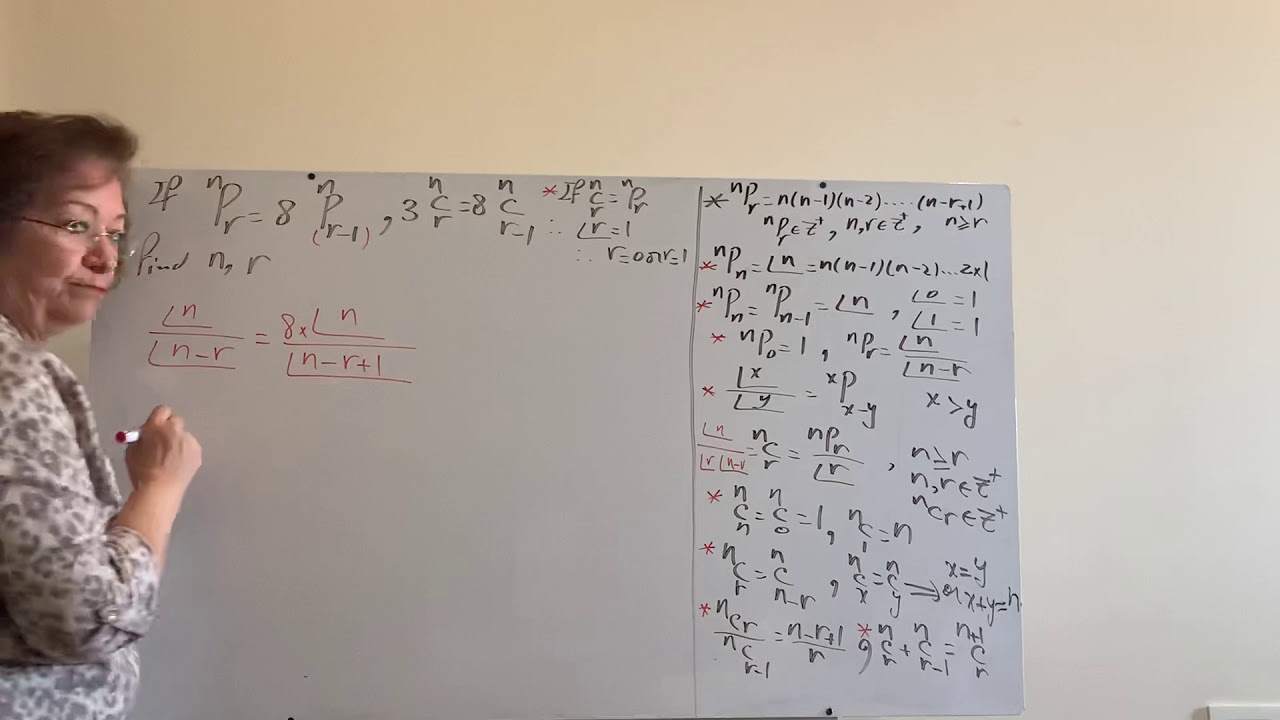 If ⁿPᵣ = 8 ⁿP₍ᵣ₋₁₎ , 3 ⁿCᵣ = 8 ⁿCᵣ₋₁
find n, r
∟n / ∟n-r = 8×∟n / ∟n-r+1
* If ⁿCᵣ = ⁿPᵣ
∴ ∟r = 1
∴ r=0 or r=1
* ⁿPᵣ = n(n-1)(n-2)....(n-r+1)
ⁿPᵣ ∈ Z⁺, n,r ∈ Z⁺, n≥r
* ⁿPₙ = ∟n = n(n-1)(n-2)...2×1
* ⁿPₙ = ⁿPₙ₋₁ = ∟n , ∟0 = 1
∟1 = 1
* ⁿP₀ = 1 , ⁿPᵣ = ∟n / ∟n-r
* ∟x / ∟y = ˣPₓ₋y x>y
∟n / ∟r ∟n-r = ⁿCᵣ = ⁿPᵣ / ∟r , n≥r
n,r ∈ Z⁺
ⁿCᵣ ∈ Z⁺
* ⁿCₙ = ⁿC₀ = 1, ⁿC₁ = n
* ⁿCᵣ = ⁿCₙ₋ᵣ , ⁿCₓ = ⁿCy ⇒ x=y
or x+y=n
* ⁿCᵣ / ⁿCᵣ₋₁ = n-r+1 / r , * ⁿCᵣ + ⁿCᵣ₋₁ = ⁿ⁺¹Cᵣ